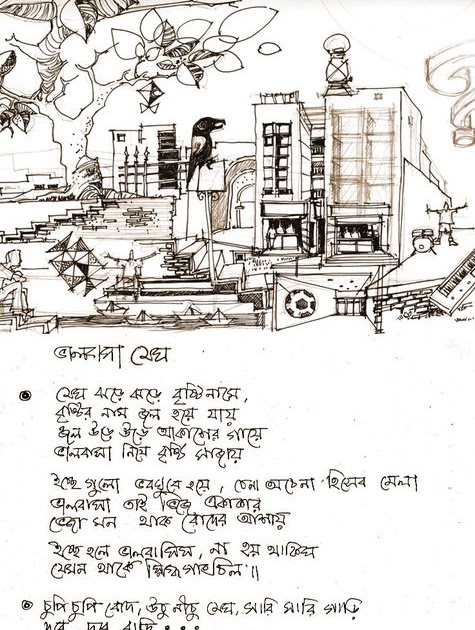 ভালবাসা মেঘ
মেঘ ঝরে ঝরে বৃষ্টি নামে,
বৃষ্টির নাম জল হয়ে যায়
জল উড়ে উড়ে আকাশের গায়ে
ভালবাসা নিয়ে বৃষ্টি সাজায়
ইচ্ছে গুলো ভবঘুরে হয়ে, চেনা অচেনা হিসেব মেলা
ভালবাসা তাই ভিজে একাকার
ভেজা মন থাক রোদের আশায়
ইচ্ছে হলে ভালবাসিস, না হয় থাকিস
যেমন থাকে স্নিগ্ধ গাংচিল ॥
চুপি চুপি রোদ, উঁচু নীচু মেঘ, সারি সারি গাড়ি
দূরে দূরে বাড়ি...